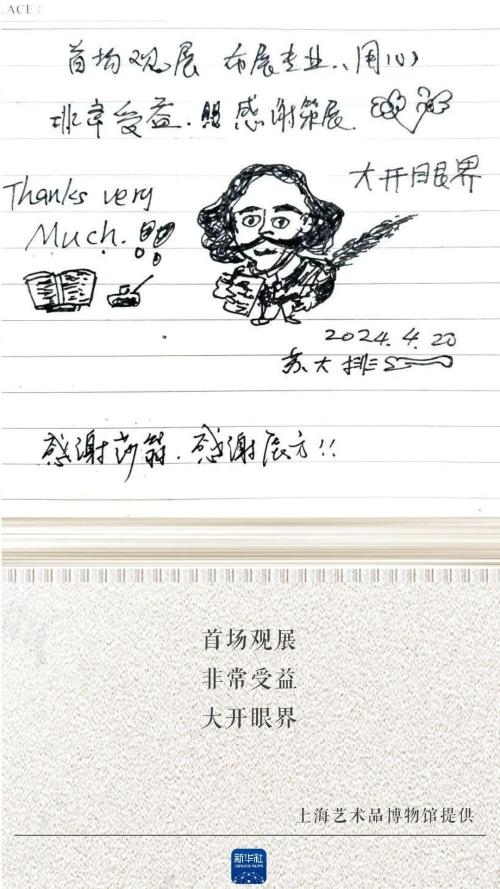 LACE
首场观展 布展专业、用心
非常受益. 感谢策展
大开眼界
Thanks very
Much.!!!
2024.4.20
苏大排
感谢莎翁. 感谢展方!!
首场观展
非常受益
大开眼界
上海艺术品博物馆提供
新华社
XINHUA NEWS